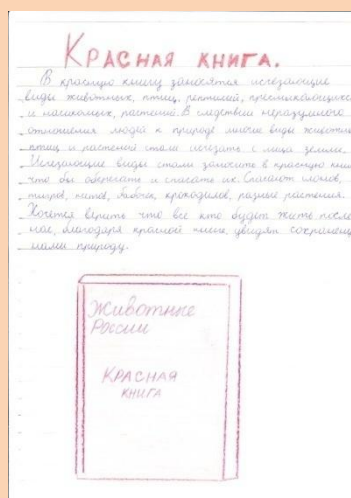 КРАСНАЯ КНИГА.
В красную книгу заносятся исчезающие
виды животных, птиц, рептилий, пресмыкающихся
и насекомых, растений. В следствии неразумного
отношения людей к природе многие виды животных
птиц и растений стали исчезать с лица земли.
Исчезающие виды стали заносить в красную книгу
что бы оберегать и спасать их. Спасают слонов,
тигров, китов, бабочек, крокодилов, разные растения.
Хочется верить что все кто будет жить после
нас, благодаря красной книге увидят сохранённую
нами природу.
Животные
России
КРАСНАЯ
КНИГА